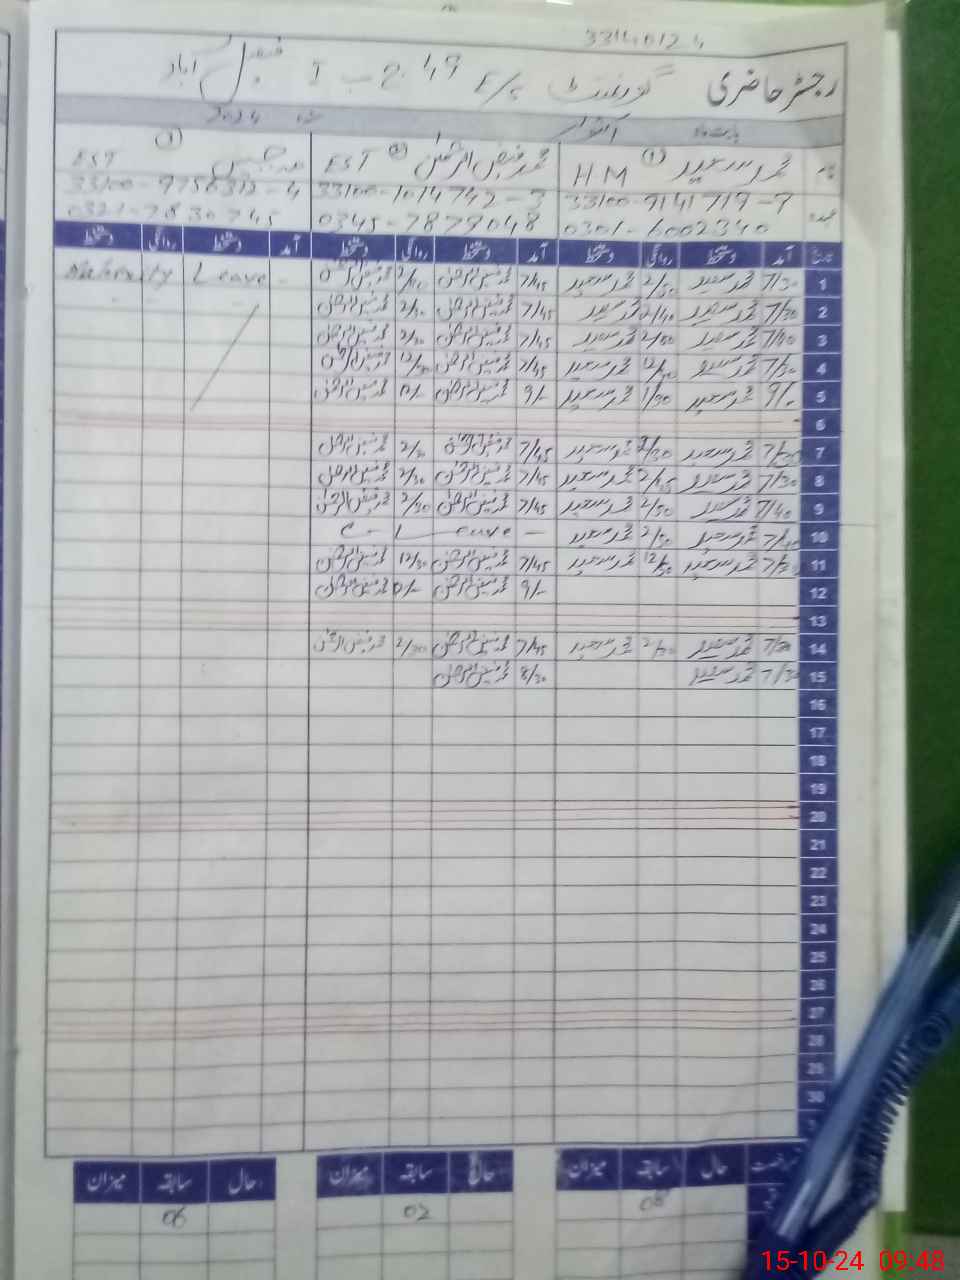 33140124
رجسٹر حاضری گورنمنٹ E/s 49 فیصل آباد
بابت ماہ اکتوبر 2024
محمد سعید (1) HM
33100-9141719-9
0301-6002340
محمد فیض الرحمٰن (2) EST
33100-1014742-3
0345-7879048
(3) EST
33100-9756312-4
7830745
تاریخ آمد دستخط روانگی دستخط آمد دستخط روانگی دستخط آمد دستخط روانگی دستخط
1 7/30 محمد سعید 2/30 محمد سعید 7/45 محمد فیض الرحمٰن محمد فیض الرحمٰن Maternity Leave -
2 7/30 محمد سعید 2/40 محمد سعید 7/45 محمد فیض الرحمٰن 2/30 محمد فیض الرحمٰن
3 7/40 محمد سعید محمد سعید 7/45 محمد فیض الرحمٰن 2/30 محمد فیض الرحمٰن
4 7/30 محمد سعید 12/30 محمد سعید 7/45 محمد فیض الرحمٰن 12/30 محمد فیض الرحمٰن
5 9/- محمد سعید 1/30 محمد سعید 9/- محمد فیض الرحمٰن محمد فیض الرحمٰن
6
7 7/30 محمد سعید 2/30 محمد سعید 7/45 محمد فیض الرحمٰن 2/30 محمد فیض الرحمٰن
8 7/30 محمد سعید 2/45 محمد سعید 7/45 محمد فیض الرحمٰن 2/30 محمد فیض الرحمٰن
9 7/40 محمد سعید 2/50 محمد سعید 7/45 محمد فیض الرحمٰن 2/30 محمد فیض الرحمٰن
10 محمد سعید 2/30 محمد سعید C-Leave -
11 7/30 محمد سعید 12/30 محمد سعید 7/45 محمد فیض الرحمٰن 12/30 محمد فیض الرحمٰن
12 9/- محمد فیض الرحمٰن محمد فیض الرحمٰن
13
14 7/30 محمد سعید 2/30 محمد سعید 7/45 محمد فیض الرحمٰن 2/30 محمد فیض الرحمٰن
15 7/30 محمد سعید 8/30 محمد فیض الرحمٰن
16
17
18
19
20
21
22
23
24
25
26
27
28
29
30
حال سابقہ میزان حال سابقہ میزان حال سابقہ میزان
08 02 06
15-10-24 09:48